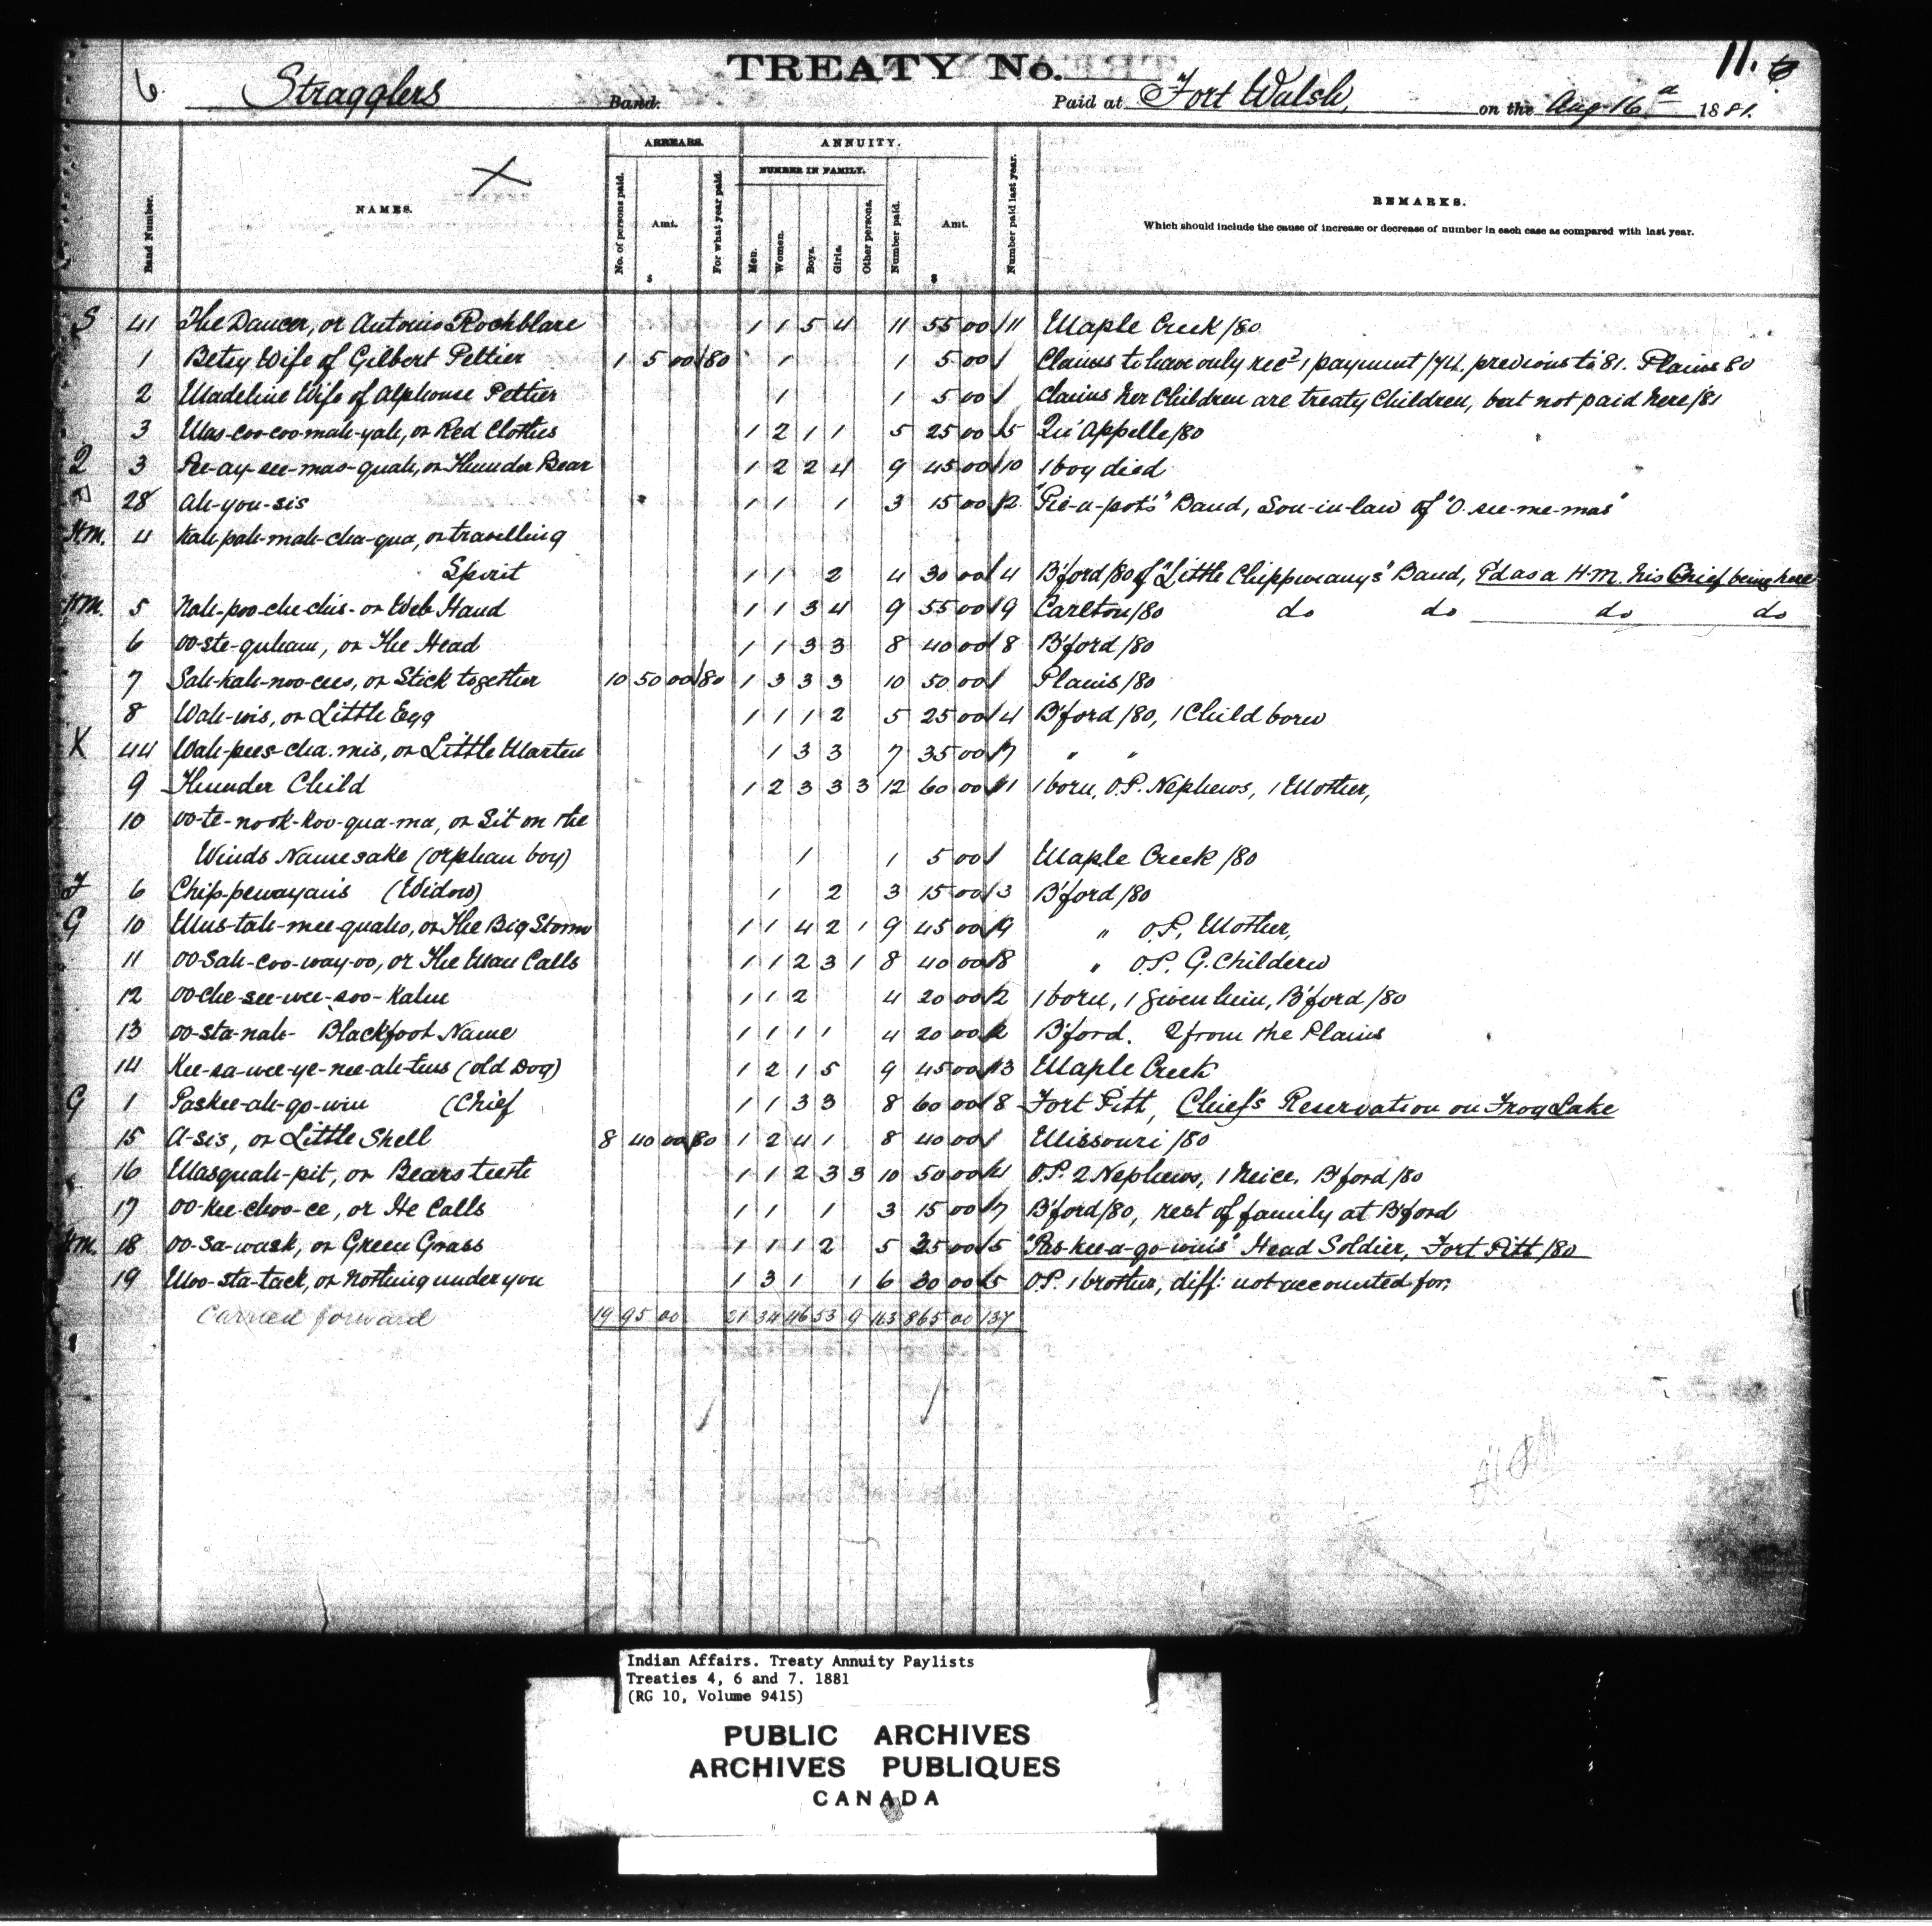 TREATY No.
11. 6
6. Stragglers Band. Paid at Fort Walsh, on the Aug 16th 1881.
Band Number. NAMES. ARREARS. No. of persons paid. Amt. $ For what year paid. ANNUITY. NUMBER IN FAMILY. Men. Women. Boys. Girls. Other persons. Number paid. Amt. $ Number paid last year. REMARKS.
Which should include the cause of increase or decrease of number in each case as compared with last year.
S 41 The Dancer, or Antonio Rochblare 1 1 5 4 11 55 00 11 Maple Creek /80
1 Betsy Wife of Gilbert Peltier 1 5 00 /80 1 1 5 00 / Claims to have only rec'd 1 payment /74. previous to 81. Plains 80
2 Madeline Wife of Alphonse Peltier 1 1 5 00 / Claims her Children are treaty Children, but not paid here /81
3 Mus-coo-coo-mah-yah, or Red Clothes 1 2 1 1 5 25 00 15 Qu'Appelle /80
2 3 Pee-ay-see-mas-quah, or Thunder Bear 1 2 2 4 9 45 00 10 1 boy died
28 Ah-you-sis 1 1 1 3 15 00 2 "Pie-a-pot's" Band, Son-in-law of "O-see-me-mas"
H.M. 4 Kah-pah-mah-cha-qua, or travelling
Spirit 1 1 2 4 30 00 4 B'ford /80 of "Little Chippweany's" Band, Pd as a H.M. his Chief being here
H.M. 5 Nah-poo-che-chis- or Web Hand 1 1 3 4 9 55 00 9 Carlton /80 do do do do
6 oo-ste-quham, or The Head 1 1 3 3 8 40 00 8 B'ford /80
7 Sah-kah-noo-ces, or Stick together 10 50 00 /80 1 3 3 3 10 50 00 / Plains /80
8 Wah-wis, or Little Egg 1 1 1 2 5 25 00 4 B'ford /80, 1 Child born
X 44 Wah-pees-cha-mis, or Little Marten 1 3 3 7 35 00 7 " "
9 Thunder Child 1 2 3 3 3 12 60 00 11 1 born, O.P. Nephews, 1 Mother,
10 oo-te-nook-koo-qua-ma, or Sit on the
Winds Namesake (orphan boy) 1 1 5 00 / Maple Creek /80
F 6 Chip-pewayanis (Widow) 1 2 3 15 00 3 B'ford /80
G 10 Mus-tah-mee-quaho, or The Big Storm 1 1 4 2 1 9 45 00 9 " O.P. Mother,
11 oo-sah-coo-way-oo, or The Man Calls 1 1 2 3 1 8 40 00 8 " O.P. G. Children
12 oo-che-see-wee-soo-kahn 1 1 2 4 20 00 2 1 born, 1 given him, B'ford /80
13 oo-sta-nah- Blackfoot Name 1 1 1 1 4 20 00 2 B'ford. 2 from the Plains
14 Kee-sa-wee-ye-nee-ah-tims (Old Dog) 1 2 1 5 9 45 00 13 Maple Creek
G 1 Paskee-ah-go-win (Chief 1 1 3 3 8 60 00 8 Fort Pitt, Chief's Reservation on Frog Lake
15 A-sis, or Little Shell 8 40 00 /80 1 2 4 1 8 40 00 / Missouri /80
16 Masquah-pit, or Bears teeth 1 1 2 3 3 10 50 00 O.P. 2 Nephews, 1 Neice. B'ford /80
17 oo-kee-choo-ce, or He Calls 1 1 1 3 15 00 7 B'ford /80, rest of family at B'ford
H.M. 18 oo-sa-wask, or Green Grass 1 1 1 2 5 35 00 5 "Pas-kee-a-go-win's" Head Soldier, Fort Pitt /80
19 Moo-sta-tack, or Nothing under you 1 3 1 1 6 30 00 5 O.P. 1 brother, diff: not accounted for.
Carried forward 19 95 00 21 34 46 53 9 163 865 00 137
Indian Affairs. Treaty Annuity Paylists
Treaties 4, 6 and 7. 1881
(RG 10, Volume 9415)
PUBLIC ARCHIVES
ARCHIVES PUBLIQUES
CANADA